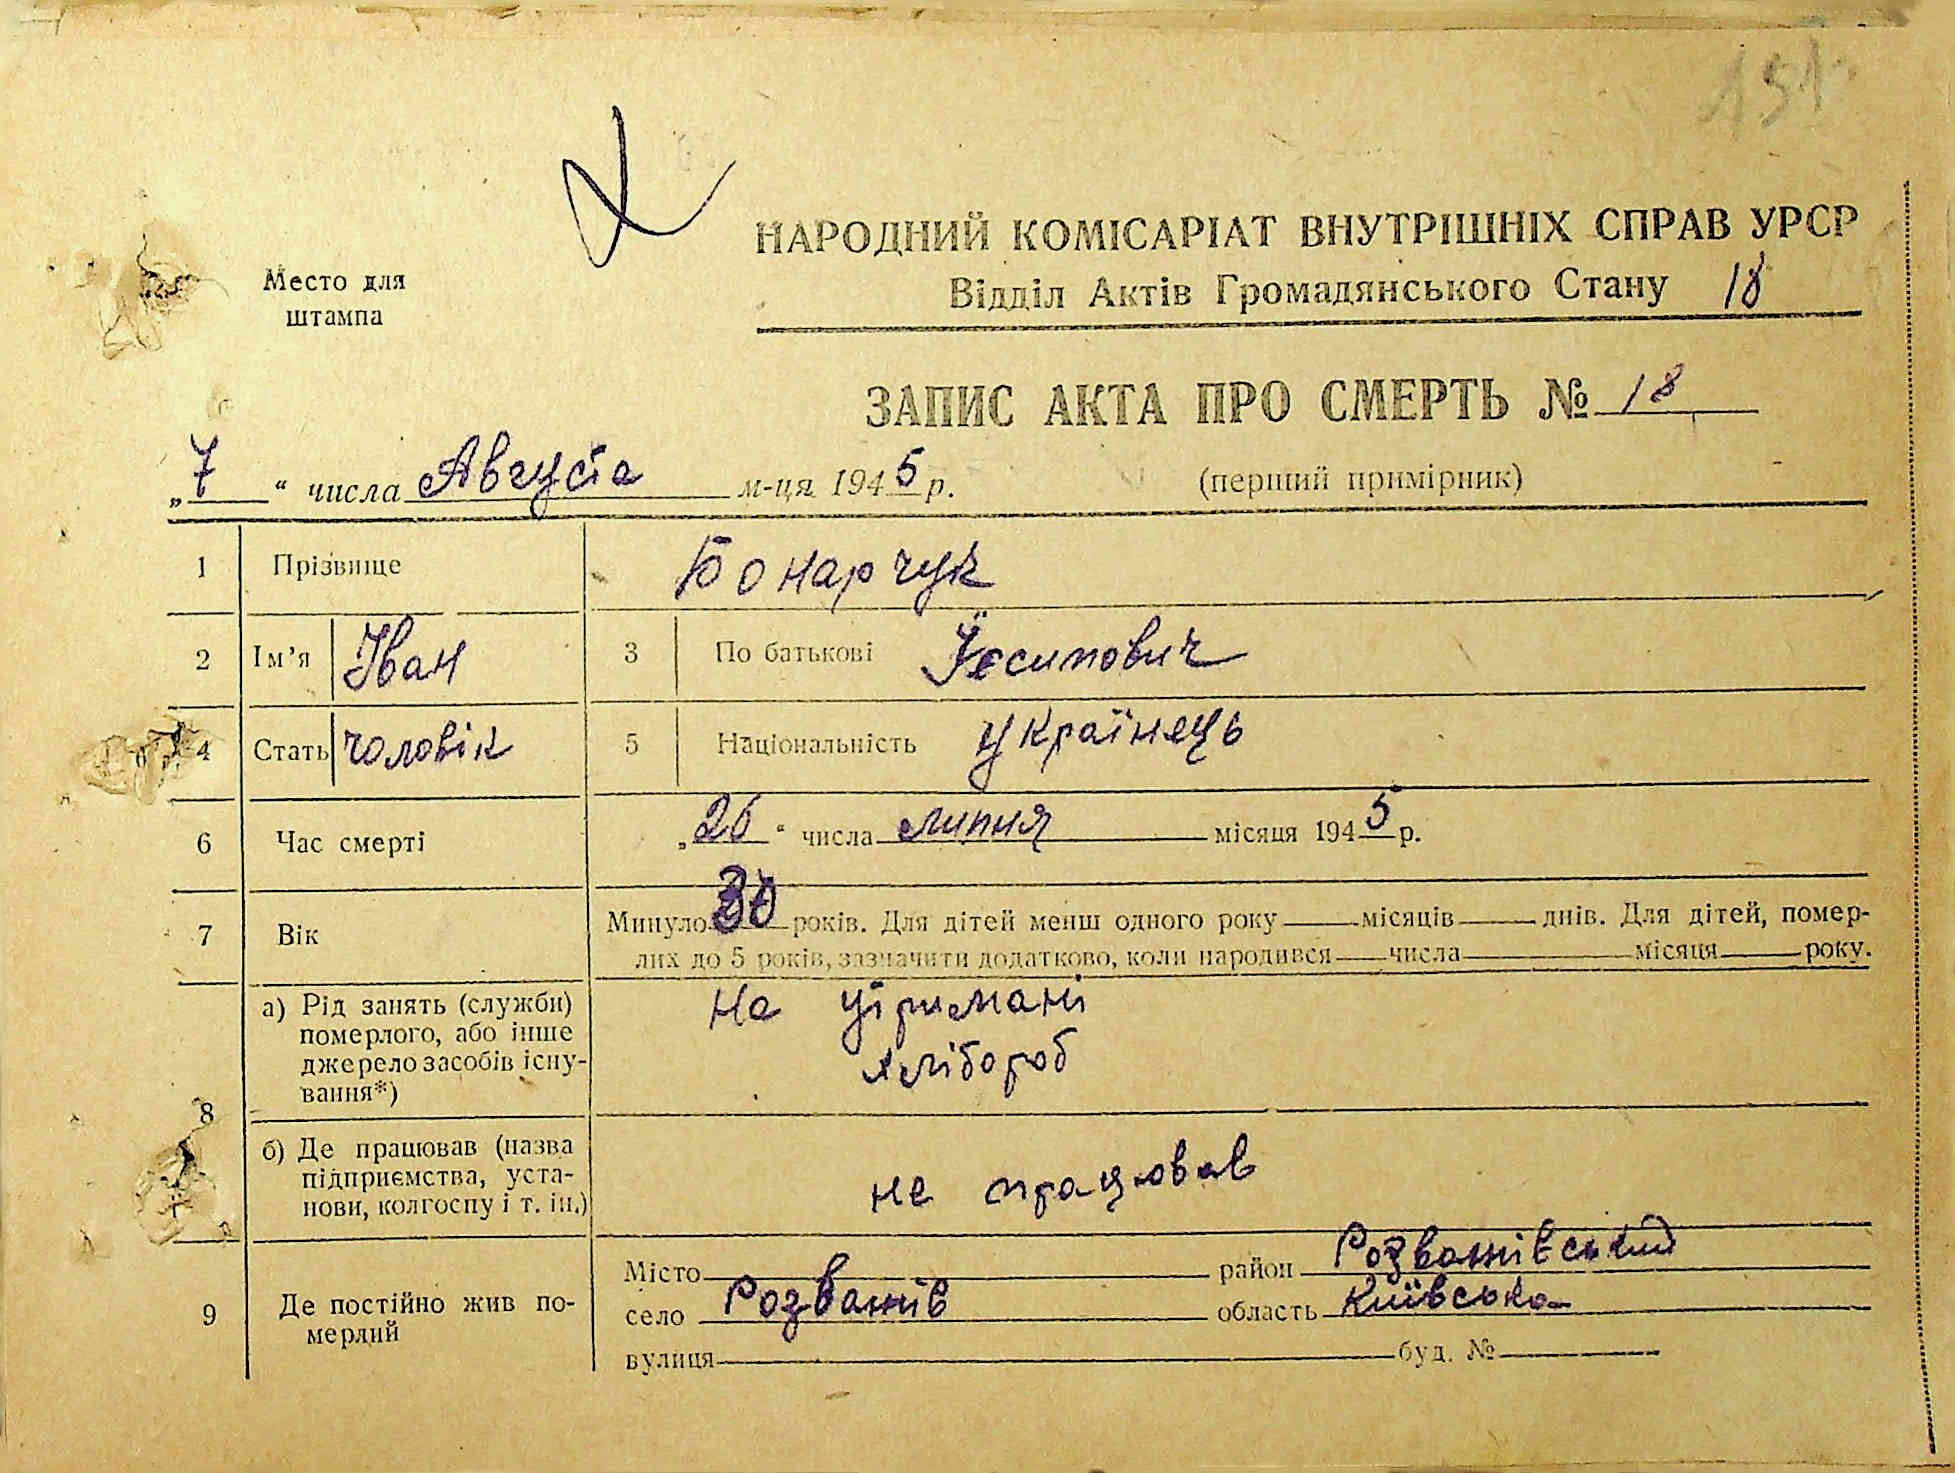 151
НАРОДНИЙ КОМІСАРІАТ ВНУТРІШНІХ СПРАВ УРСР
Место для
штампа
Відділ Актів Громадянського Стану 18
ЗАПИС АКТА ПРО СМЕРТЬ № 18
„7“ числа Августа м-ця 1945 р. (перший примірник)
1 Прізвище Бонарчук
2 Ім’я Іван 3 По батькові
4 Стать чоловік 5 Національність українець
6 Час смерті „26“ числа липня місяця 1945 р.
7 Вік Минуло 30 років. Для дітей менш одного року місяців днів. Для дітей, помер-
лих до 5 років, зазначити додатково, коли народився числа місяця року.
8 а) Рід занять (служби) померлого, або інше джерело засобів існу-вання*) На утримані
хлібороб
б) Де працював (назва підприємства, уста-нови, колгоспу і т. ін.) не працював
9 Де постійно жив по-мерлий Місто район Розважівський
село Розважів область Київська
вулиця буд. №